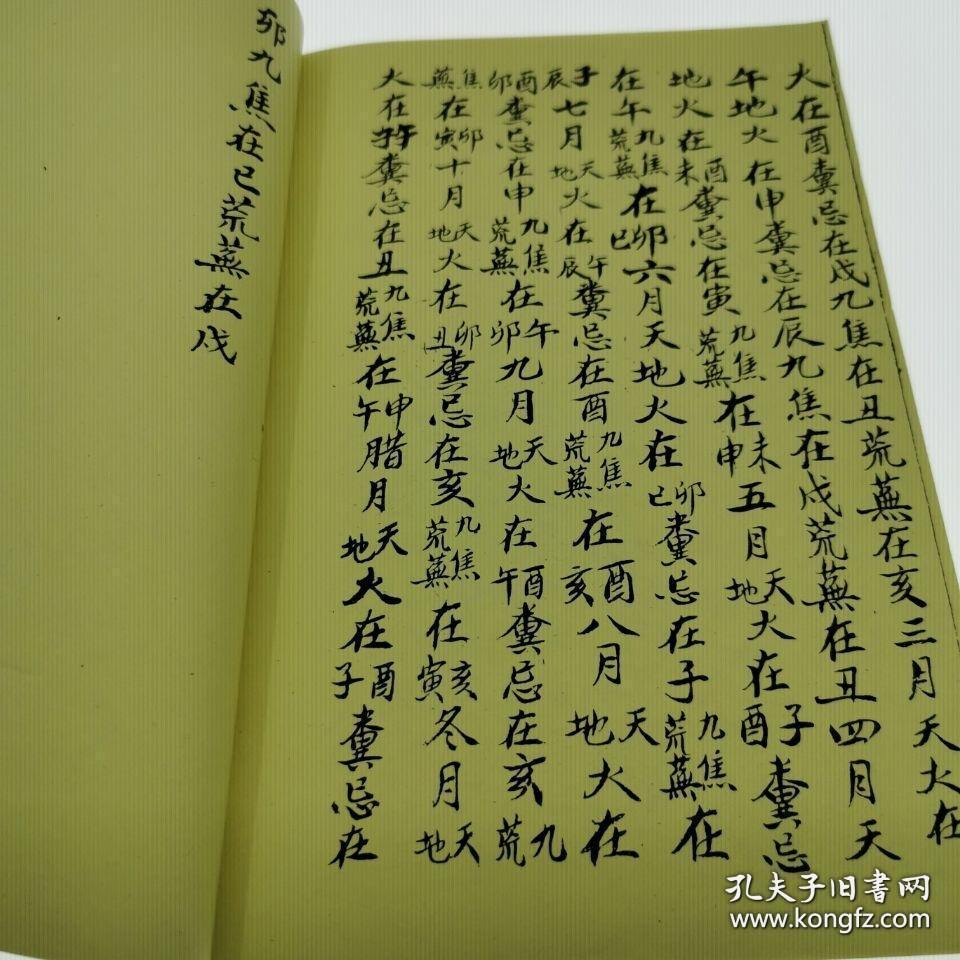 火在酉糞忌在戌九焦在丑荒蕪在亥三月天火在
午地火在申糞忌在辰九焦在戌荒蕪在丑四月天
地火在酉未糞忌在寅九焦荒蕪在未申五月天地火在子酉糞忌
在午九焦荒蕪在卯巳六月天地火在卯巳糞忌在子九焦荒蕪在
子辰七月天地火在午辰糞忌在酉九焦荒蕪在酉亥八月天地火在
酉卯糞忌在申九焦荒蕪在午卯九月天地火在酉午糞忌在亥九荒
焦蕪在卯寅十月天地火在卯丑糞忌在亥九焦荒蕪在亥寅冬月天地
火在午糞忌在丑九焦荒蕪在申午腊月天地火在酉子糞忌在
卯九焦在巳荒蕪在戌
孔夫子旧书网
www.kongfz.com